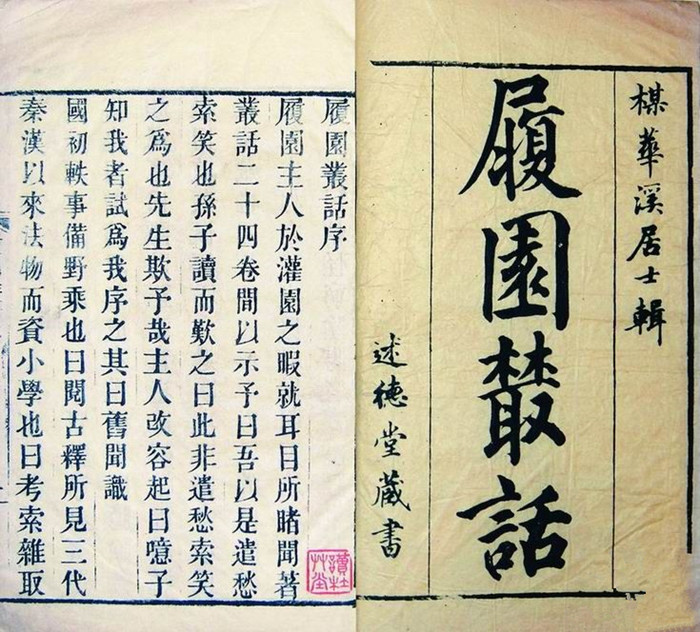 楳華溪居士輯
履園叢話
述德堂藏書
履園叢話序
履園主人於灌園之暇就耳目所睹聞著
叢話二十四卷間以示予曰吾以是遣愁
索笑也孫子讀而歎之曰此非遣愁索笑
之爲也先生欺予哉主人改容起曰噫子
知我者試爲我序之其曰舊聞識
國初軼事備野乘也曰閱古釋所見三代
秦漢以來法物而資小學也曰考索雜取
讀杜艸堂